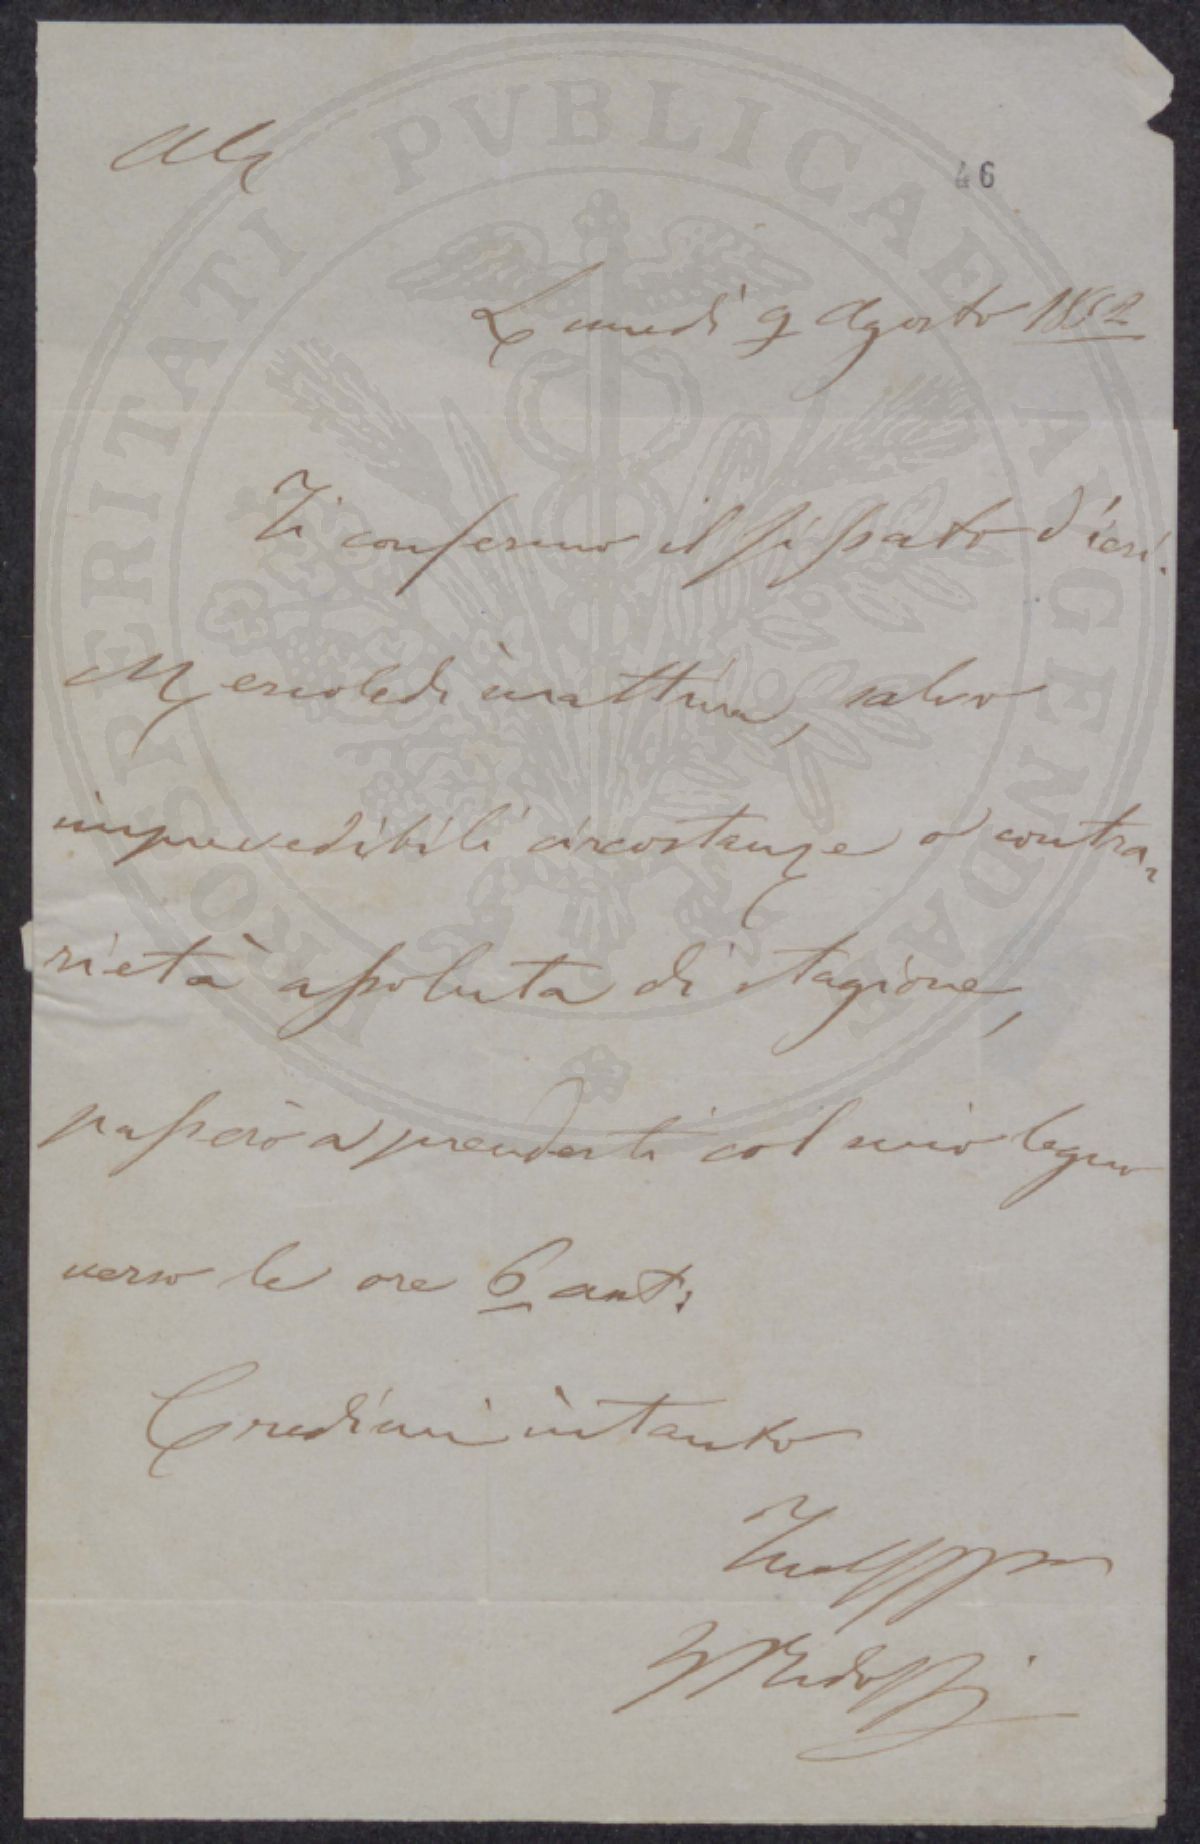 46
Lunedì 9 Agosto 1852
Ti confermo il fissato d'ieri.
Mercoledì mattina, salvo
imprevedibili circostanze o contra-
rietà assoluta di stagione,
passerò a prenderti col mio legno
verso le ore 6 ant:
Credimi intanto
PROSPERITATI PUBLICAE AUGENDAE